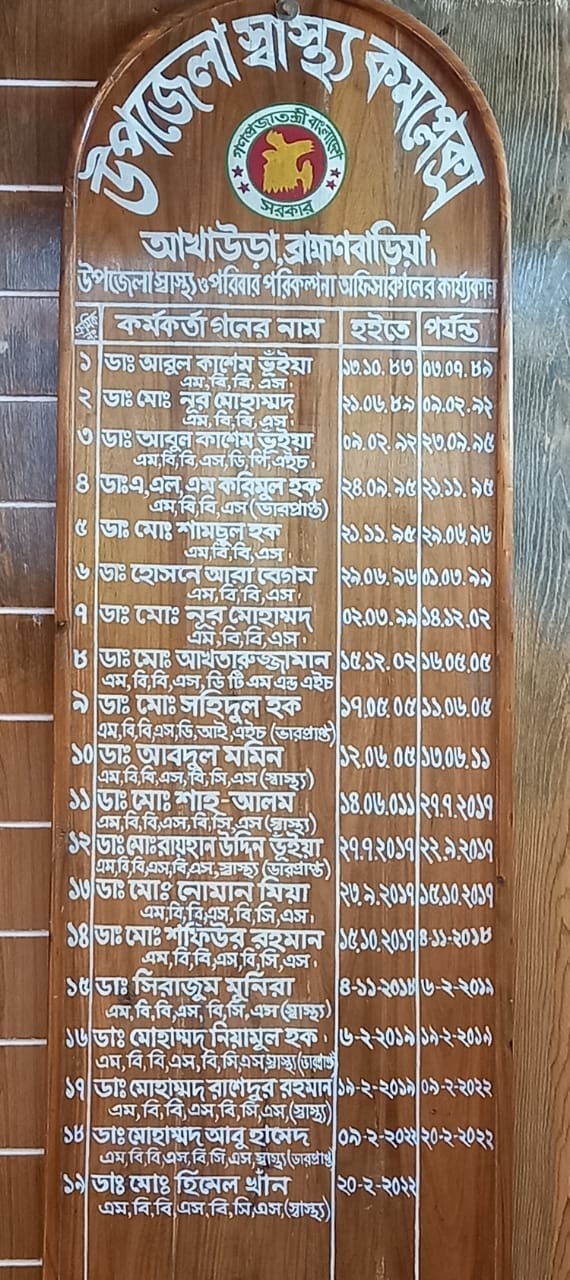 উপজেলা স্বাস্থ্য কমপ্লেক্স
গণপ্রজাতন্ত্রী বাংলাদেশ
সরকার
আখাউড়া, ব্রাহ্মণবাড়িয়া।
উপজেলা স্বাস্থ্য ও পরিবার পরিকল্পনা অফিসারগনের কার্য্যকাল
কর্মকর্তা গনের নাম হইতে পর্যন্ত
১ ডাঃ আবুল কাশেম ভূঁইয়া ১৩.১০.৮৩ ০৩.০৭.৮৯
এম,বি,বি,এস।
২ ডাঃ মোঃ নূর মোহাম্মদ ২১.০৬.৮৯ ০৯.০২.৯২
এম,বি,বি,এস।
৩ ডাঃ আবুল কাশেম ভূঁইয়া ০৯.০২.৯২ ২৩.০৯.৯৫
এম,বি,বি,এস,ডি,পি,এইচ,
৪ ডাঃএ,এল,এম করিমুল হক ২৪.০৯.৯৫ ২১.১১.৯৫
এম,বি,বি,এস (ভারপ্রাপ্ত)
৫ ডাঃ মোঃ শামছুল হক ২১.১১.৯৫ ২৯.০৬.৯৬
এম,বি,বি,এস।
৬ ডাঃ হোসনে আরা বেগম ২৯.০৬.৯৬ ০১.০৩.৯৯
এম,বি,বি,এস।
৭ ডাঃ মোঃ নূর মোহাম্মদ ০২.০৩.৯৯ ১৪.১২.০২
এম,বি,বি,এস।
৮ ডাঃ মোঃ আখতারুজ্জামান ১৫.১২.০২ ১৬.০৫.০৫
এম,বি,বি,এস,ডি টি এম এন্ড এইচ
৯ ডাঃ মোঃ সহিদুল হক ১৭.০৫.০৫ ১১.০৬.০৫
এম,বি,বি,এস,ডি,আই,এইচ (ভারপ্রাপ্ত)
১০ ডাঃ আবদুল মমিন ১২.০৬.০৫ ১৩.০৬.১১
এম,বি,বি,এস,বি,সি,এস (স্বাস্থ্য)
১১ ডাঃ মোঃ শাহ-আলম ১৪.০৬.০১১ ২৭.৭.২০১৭
এম,বি,বি,এস,বি,সি,এস (স্বাস্থ্য)
১২ ডাঃমোঃরায়হান উদ্দিন ভূঁইয়া ২৭.৭.২০১৭ ২২.৯.২০১৭
এম,বি,বি,এস,বি,এস,স্বাস্থ্য (ভারপ্রাপ্ত)
১৩ ডাঃ মোঃ নোমান মিয়া ২৩.৯.২০১৭ ১৫.১০.২০১৭
এম,বি,বি,এস,বি,সি,এস।
১৪ ডাঃ মোঃ শফিউর রহমান ১৫.১০.২০১৭ ৪-১১-২০১৮
এম,বি,বি,এস,বি,সি,এস।
১৫ ডাঃ সিরাজুম মুনিরা ৪-১১-২০১৮ ৬-২-২০১৯
এম,বি,বি,এস,বি,সি,এস (স্বাস্থ্য)
১৬ ডাঃ মোহাম্মদ নিয়ামুল হক। ৬-২-২০১৯ ১৯-২-২০১৯
এম,বি,বি,এস,বি,সি,এস স্বাস্থ্য (ভারপ্রাপ্ত)
১৭ ডাঃ মোহাম্মদ রাশেদুর রহমান ১৯-২-২০১৯ ০৯-২-২০২২
এম,বি,বি,এস,বি,সি,এস,(স্বাস্থ্য)
১৮ ডাঃ মোহাম্মদ আবু হামেদ ০৯-২-২০২২ ২০-২-২০২২
এম,বি,বি,এস,বি,সি,এস,স্বাস্থ্য (ভারপ্রাপ্ত)
১৯ ডাঃ মোঃ হিমেল খাঁন ২০-২-২০২২
এম,বি,বি,এস,বি,সি,এস,(স্বাস্থ্য)